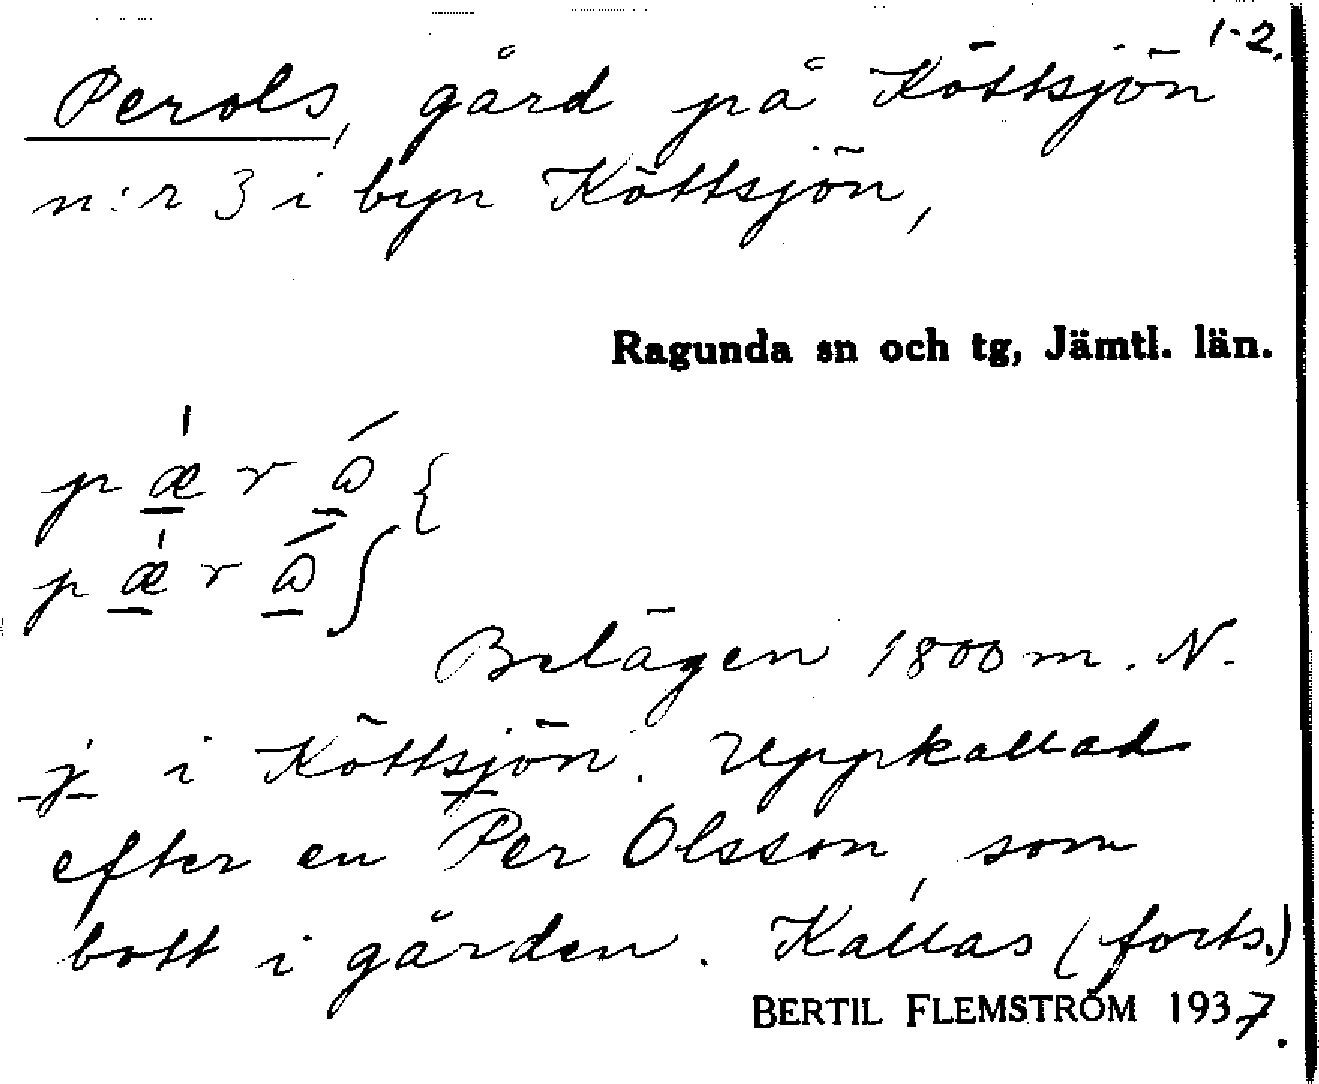 1-2.
Perols, gård på Köttsjön
n:r 3 i byn Köttsjön,
Ragunda sn och tg, Jämtl. län.
Belägen 1800 m. N.
j i Köttsjön. Uppkallad
efter en Per Olsson, som
bott i gården. Kallas (forts.)
BERTIL FLEMSTRÖM 1937.